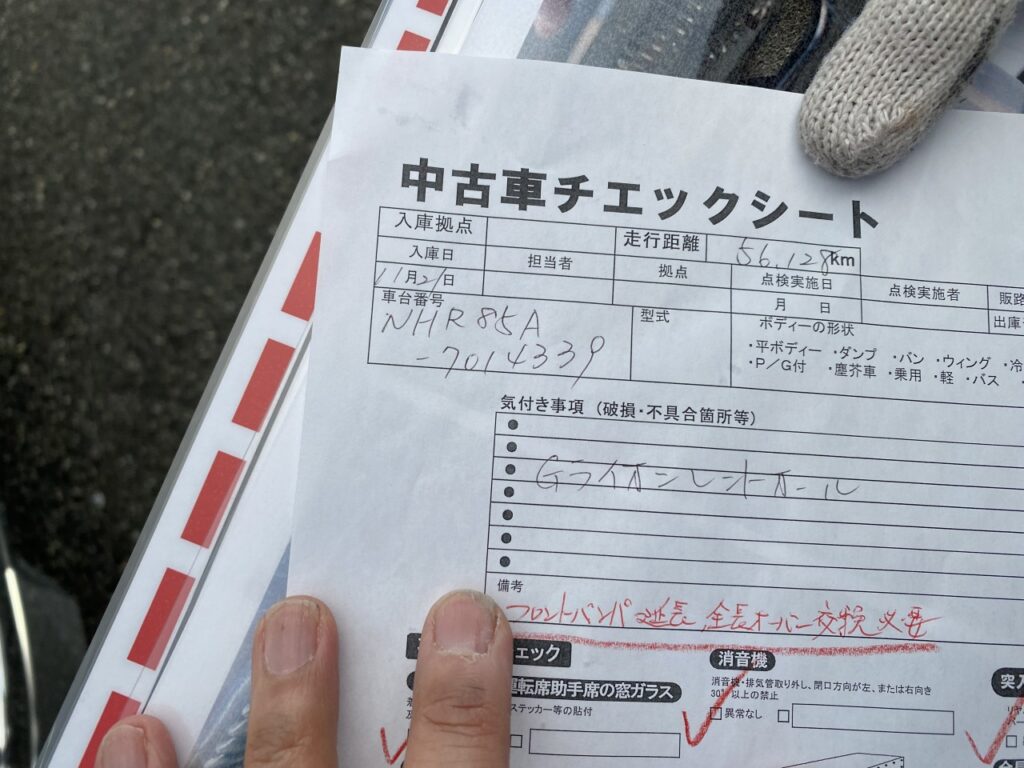 中古車チエックシート
入庫拠点 走行距離 56,128km
入庫日 担当者 拠点 点検実施日 点検実施者 販路
11月21日 月 日 出庫
車台番号 型式 ボディーの形状
NHR85A
-7014339
・平ボディー ・ダンプ ・バン ・ウィング ・冷
・P/G付 ・塵芥車 ・乗用 ・軽 ・バス
気付き事項（破損・不具合箇所等）
Gライオンレントオール
備考
フロントバンパ延長、全長オーバー交換必要
ェック
消音機
運転席助手席の窓ガラス
消音機・排気管取り外し、閉口方向が左、または右向き
30°以上の禁止
ステッカー等の貼付
異常なし
突入